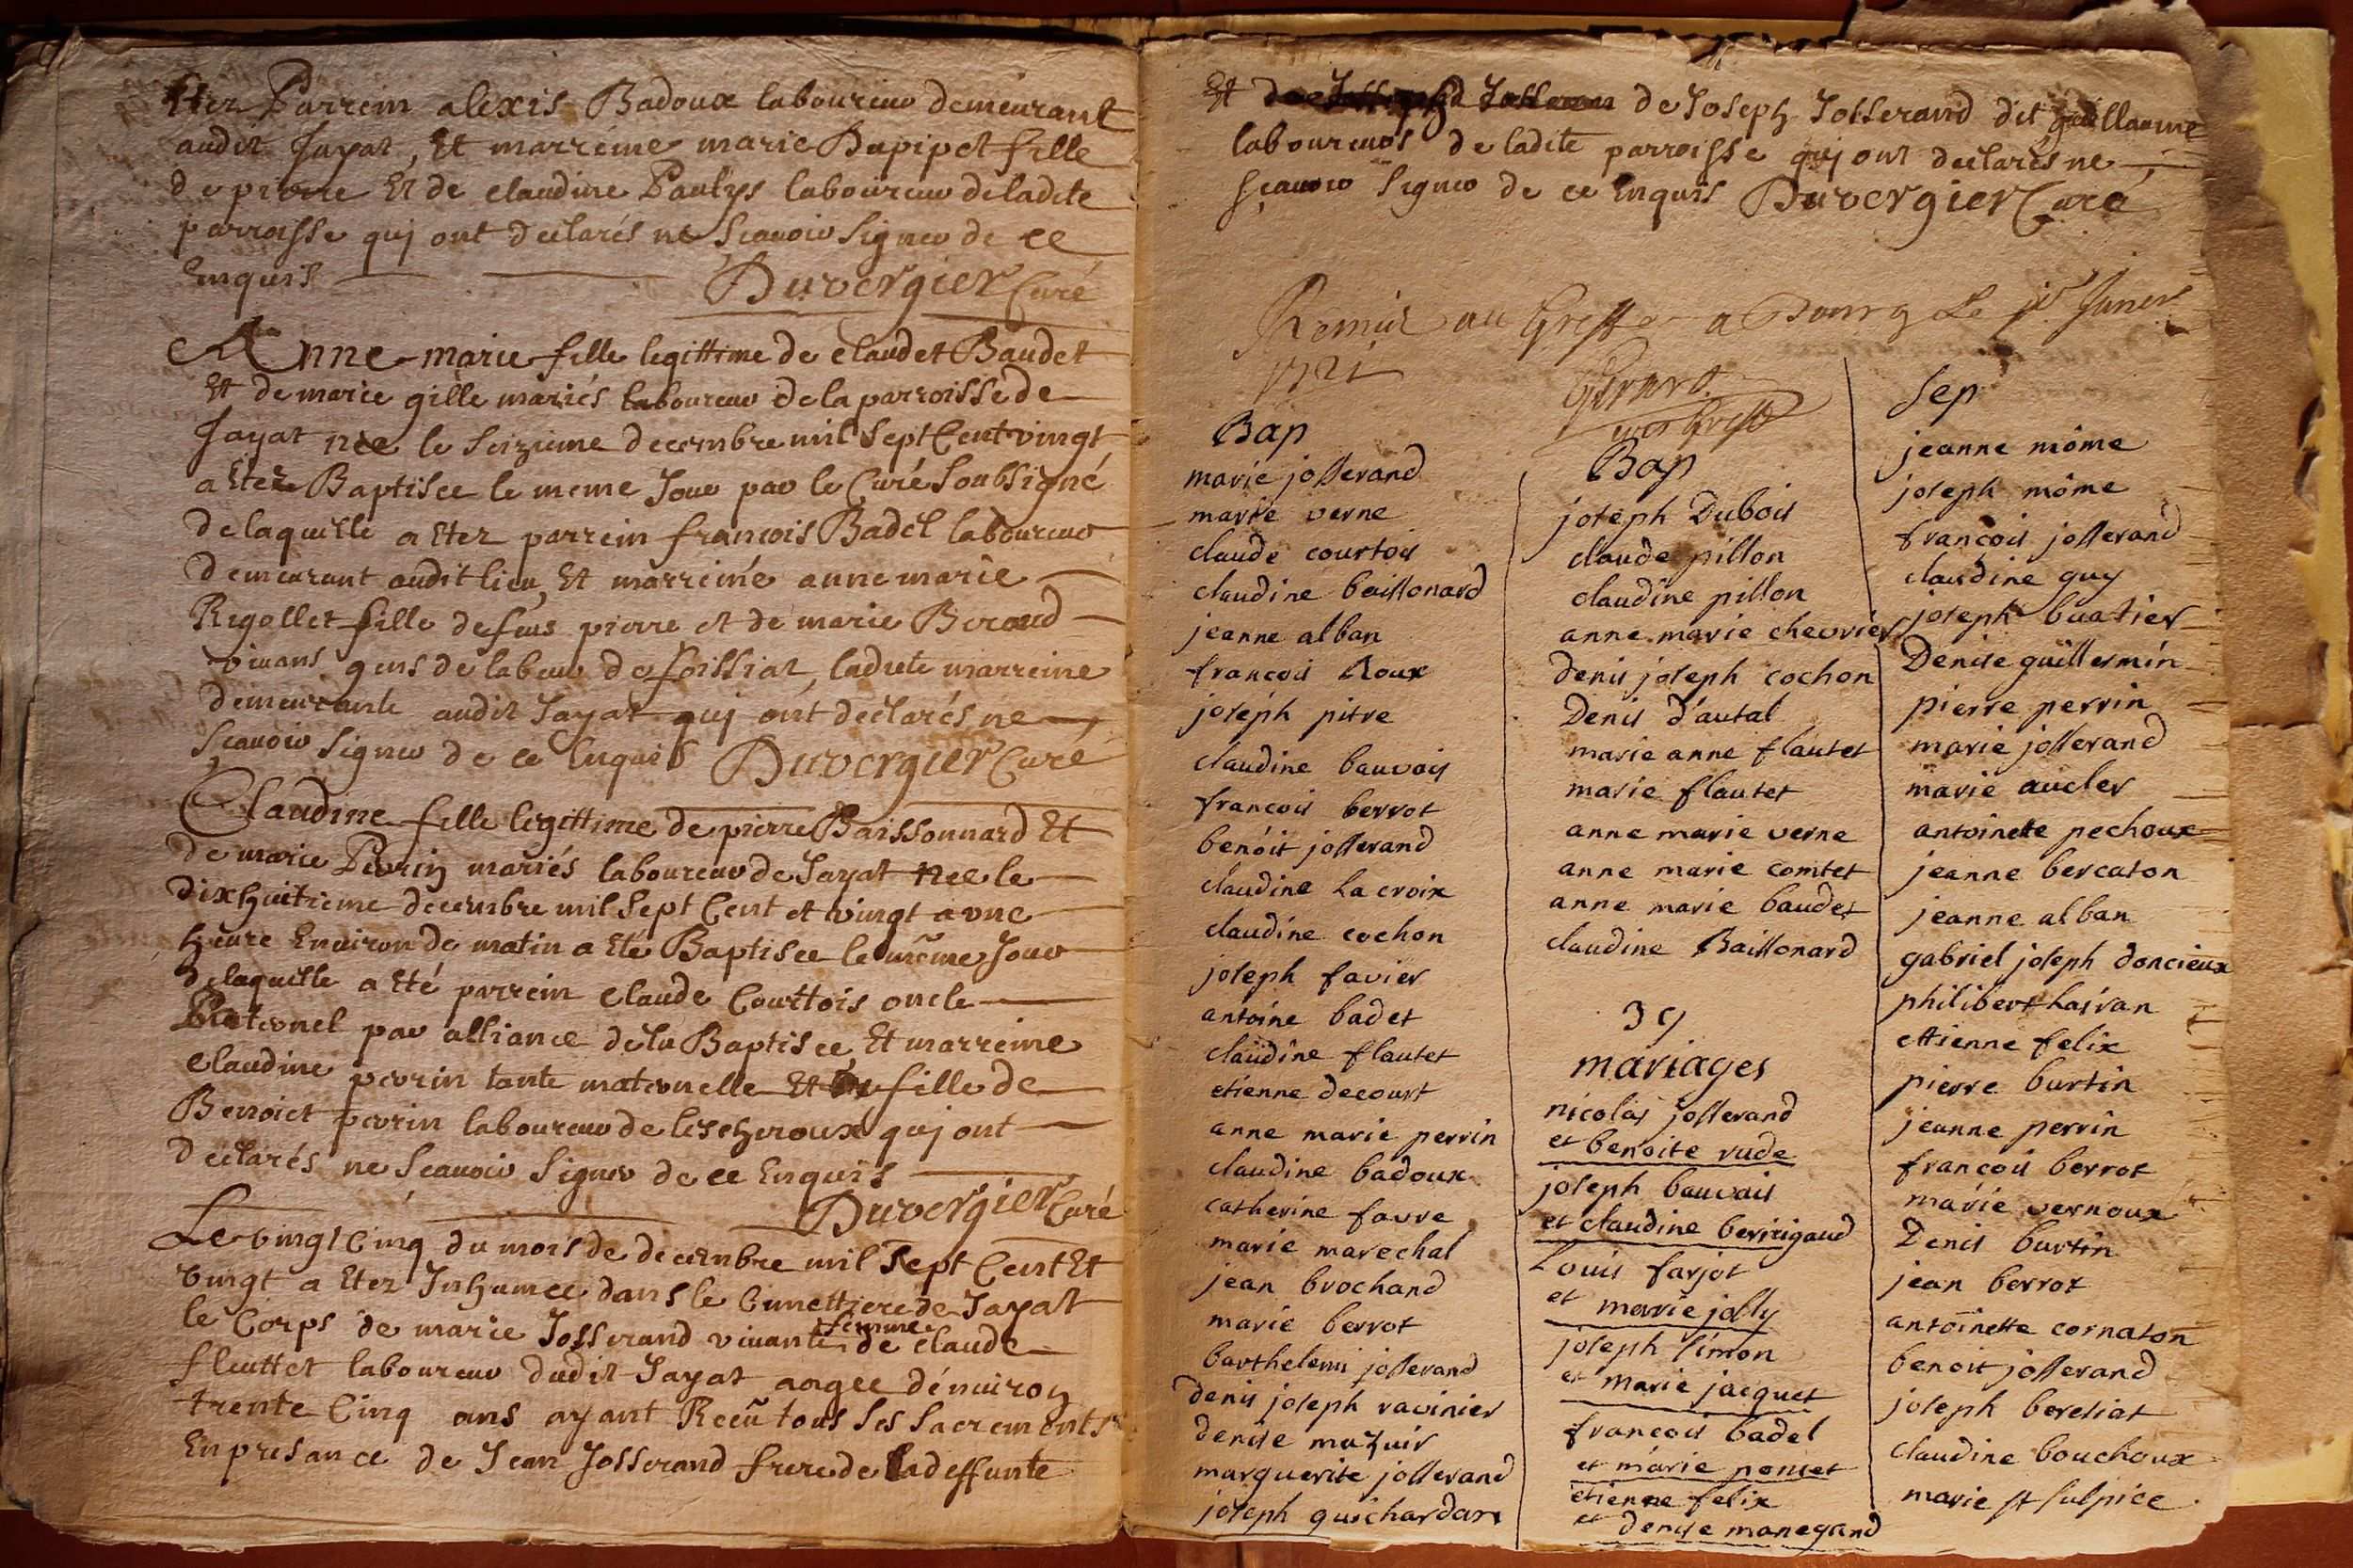 Etez Parrein alexis Badoux laboureur demeurant
audit Jayat, Et marreine marie Dupipet fille
de pierre Et de claudine Paulys laboureur de ladite
parroisse quj ont declarés ne Scavoir Signer de ce
Enquis Duvergier Curé
Anne-marie fille legittime de claudet Baudet
Et de marie gille mariés laboureur de la parroisse de
Jayat nee le Seizieme decembre mil Sept Cent vingt
a Etez Baptisee le meme Jour par le Curé Soubsigné
de laquelle a Etez parrein francois Badel laboureur
demeurant audit lieu, Et marreine anne marie
Rigollet fille de feus pierre et de marie Beraud
vivans gens de labeur de foissiat, ladite marreine
demeurante audit Jayat quj ont declarés ne
Sçavoir Signer de ce Enquis Duvergier Curé
Claudine fille legittime de pierre Baissonnard Et
de marie Perrin mariés laboureur de Jayat nee le
dixhuitieme decembre mil Sept Cent et vingt a une
heure Environ de matin a Eté Baptisee le même Jour
de laquelle a Eté parrein claude Courtois oncle
Paternel par alliance de la Baptisee, Et marreine
claudine perrin tante maternelle Et fille de
Benoict perrin laboureur de lescheroux quj ont
declarés ne Scavoir Signer de ce Enquis
Duvergier Curé
Le vingt Cinq du mois de decembre mil Sept Cent Et
vingt a Etez Inhumee dans le Cimettiere de Jayat
le Corps de marie Josserand vivante femme de claude
fleuttet laboureur dudit Jayat aagee d'environ
trente Cinq ans ayant Receu tous Ses Sacrements
En presance de Jean Josserand frere de Ladeffunte
Et de Joseph Josserand dit guillaume
laboureurs de ladite parroisse quj ont declarés ne
sçavoir Signer de ce Enquis Duvergier Curé
Remis au Greffe a Bourg Le Janer
1721
Bap
marie josserand
marie verne
claude courtois
claudine baissonard
jeanne alban
francois Roux
joséph pitre
claudine bauvois
francois berrot
benoit josserand
claudine La croix
claudine cochon
joseph favier
antoine badet
claudine flautet
etienne decourt
anne marie perrin
claudine badoux
catherine favre
marie marechal
jean brochand
marie berrot
barthelemi josserand
denis joseph ravinier
denise mazuir
marguerite josserand
joseph guichardan
Bap
joseph Dubois
claude pillon
claudine pillon
anne marie chevrier
denis joseph cochon
Denis d'autal
marie anne flautet
marie flautet
anne marie verne
anne marie comtet
anne marie baudet
claudine Baissonard
39
mariages
nicolas josserand
et benoite rude
joseph bauvais
et claudine berjrigaud
Louis farjot
et marie jolly
joseph simon
et marie jacquet
francois badel
et marie poncet
etienne felix
et denise manegand
Sep
jeanne môme
joseph môme
francois josserand
claudine guy
joseph buatier
Denise guillermin
pierre perrin
marie josserand
marie aucler
antoinette pechoux
jeanne bercaton
jeanne alban
gabriel joseph doncieux
philibert Lasran
ettienne felix
pierre burtin
jeanne perrin
francois berrot
marie vernoux
Denis burtin
jean berrot
antoinette cornaton
benoit josserand
joseph bereliat
claudine bouchoux
marie st sulpice